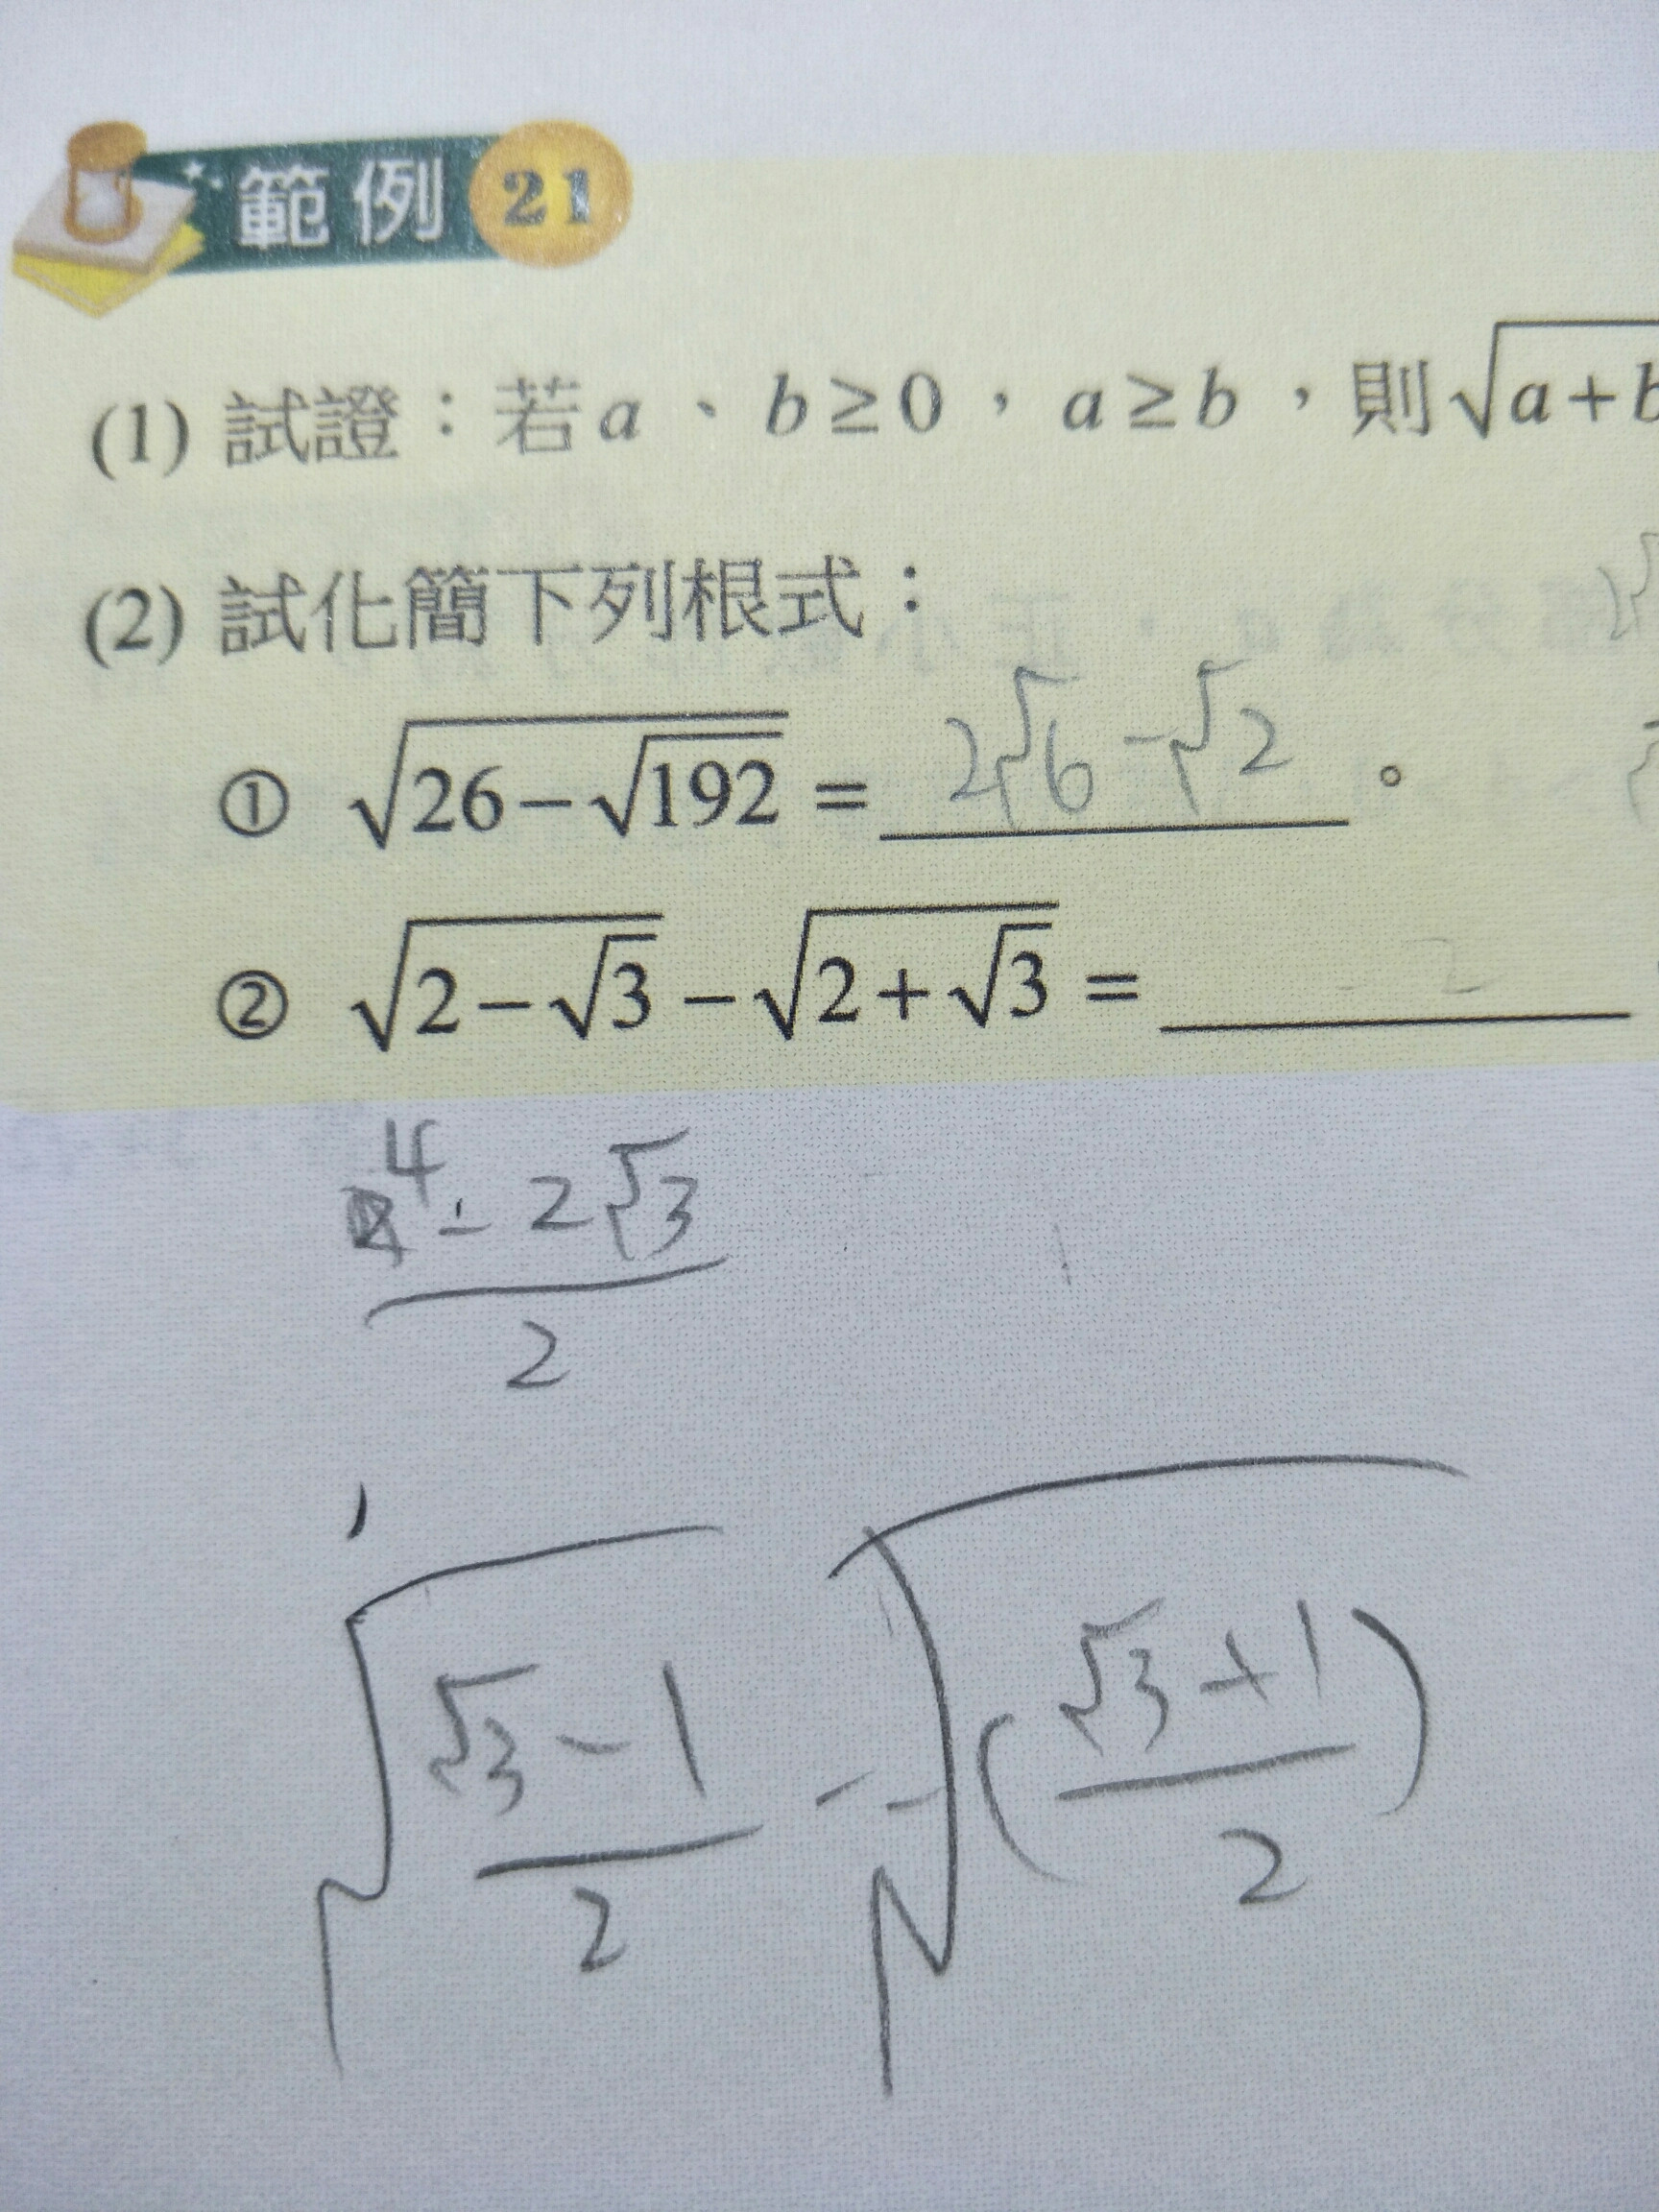 範例 21
(1) 試證：若a、b≥0，a≥b，則√a+b
(2) 試化簡下列根式：
① √(26−√192) = 2√6−√2。
② √(2−√3) − √(2+√3) =
4−2√3
2
√3−1
2
−
(√3+1)
2